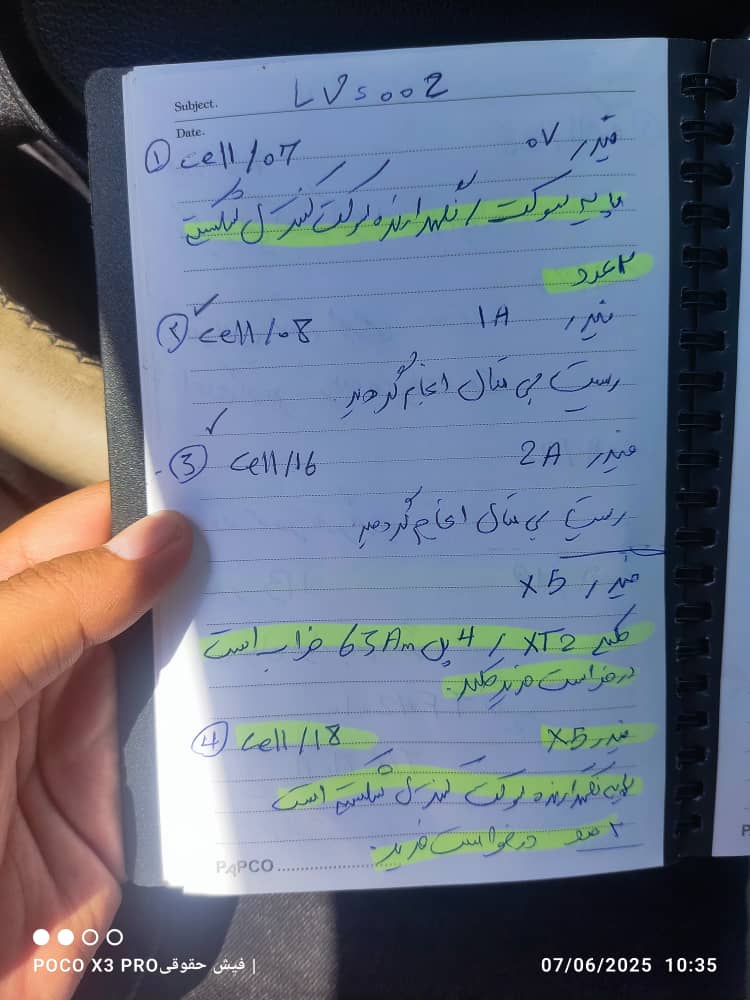 Subject. LVS002
Date.
① cell/07 فیدر 07
پایه سوکت / نگهدارنده سوکت کنترل شکسته
۲ عدد
② cell/08 فیدر 1A
ریست بی متال انجام گردید
③ cell/16 فیدر 2A
ریست بی متال انجام گردید.
فیدر X5
کلید XT2 / 4 پل 63Am خراب است
درخواست خرید کلید.
④ cell/18 فیدر X5
پایه نگهدارنده سوکت کنترل شکسته است
۲ عدد درخواست خرید.
PAPCO
POCO X3 PRO فیش حقوقی |
07/06/2025 10:35